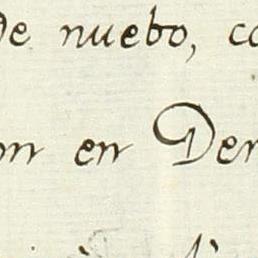 De nuebo, co
on en Der